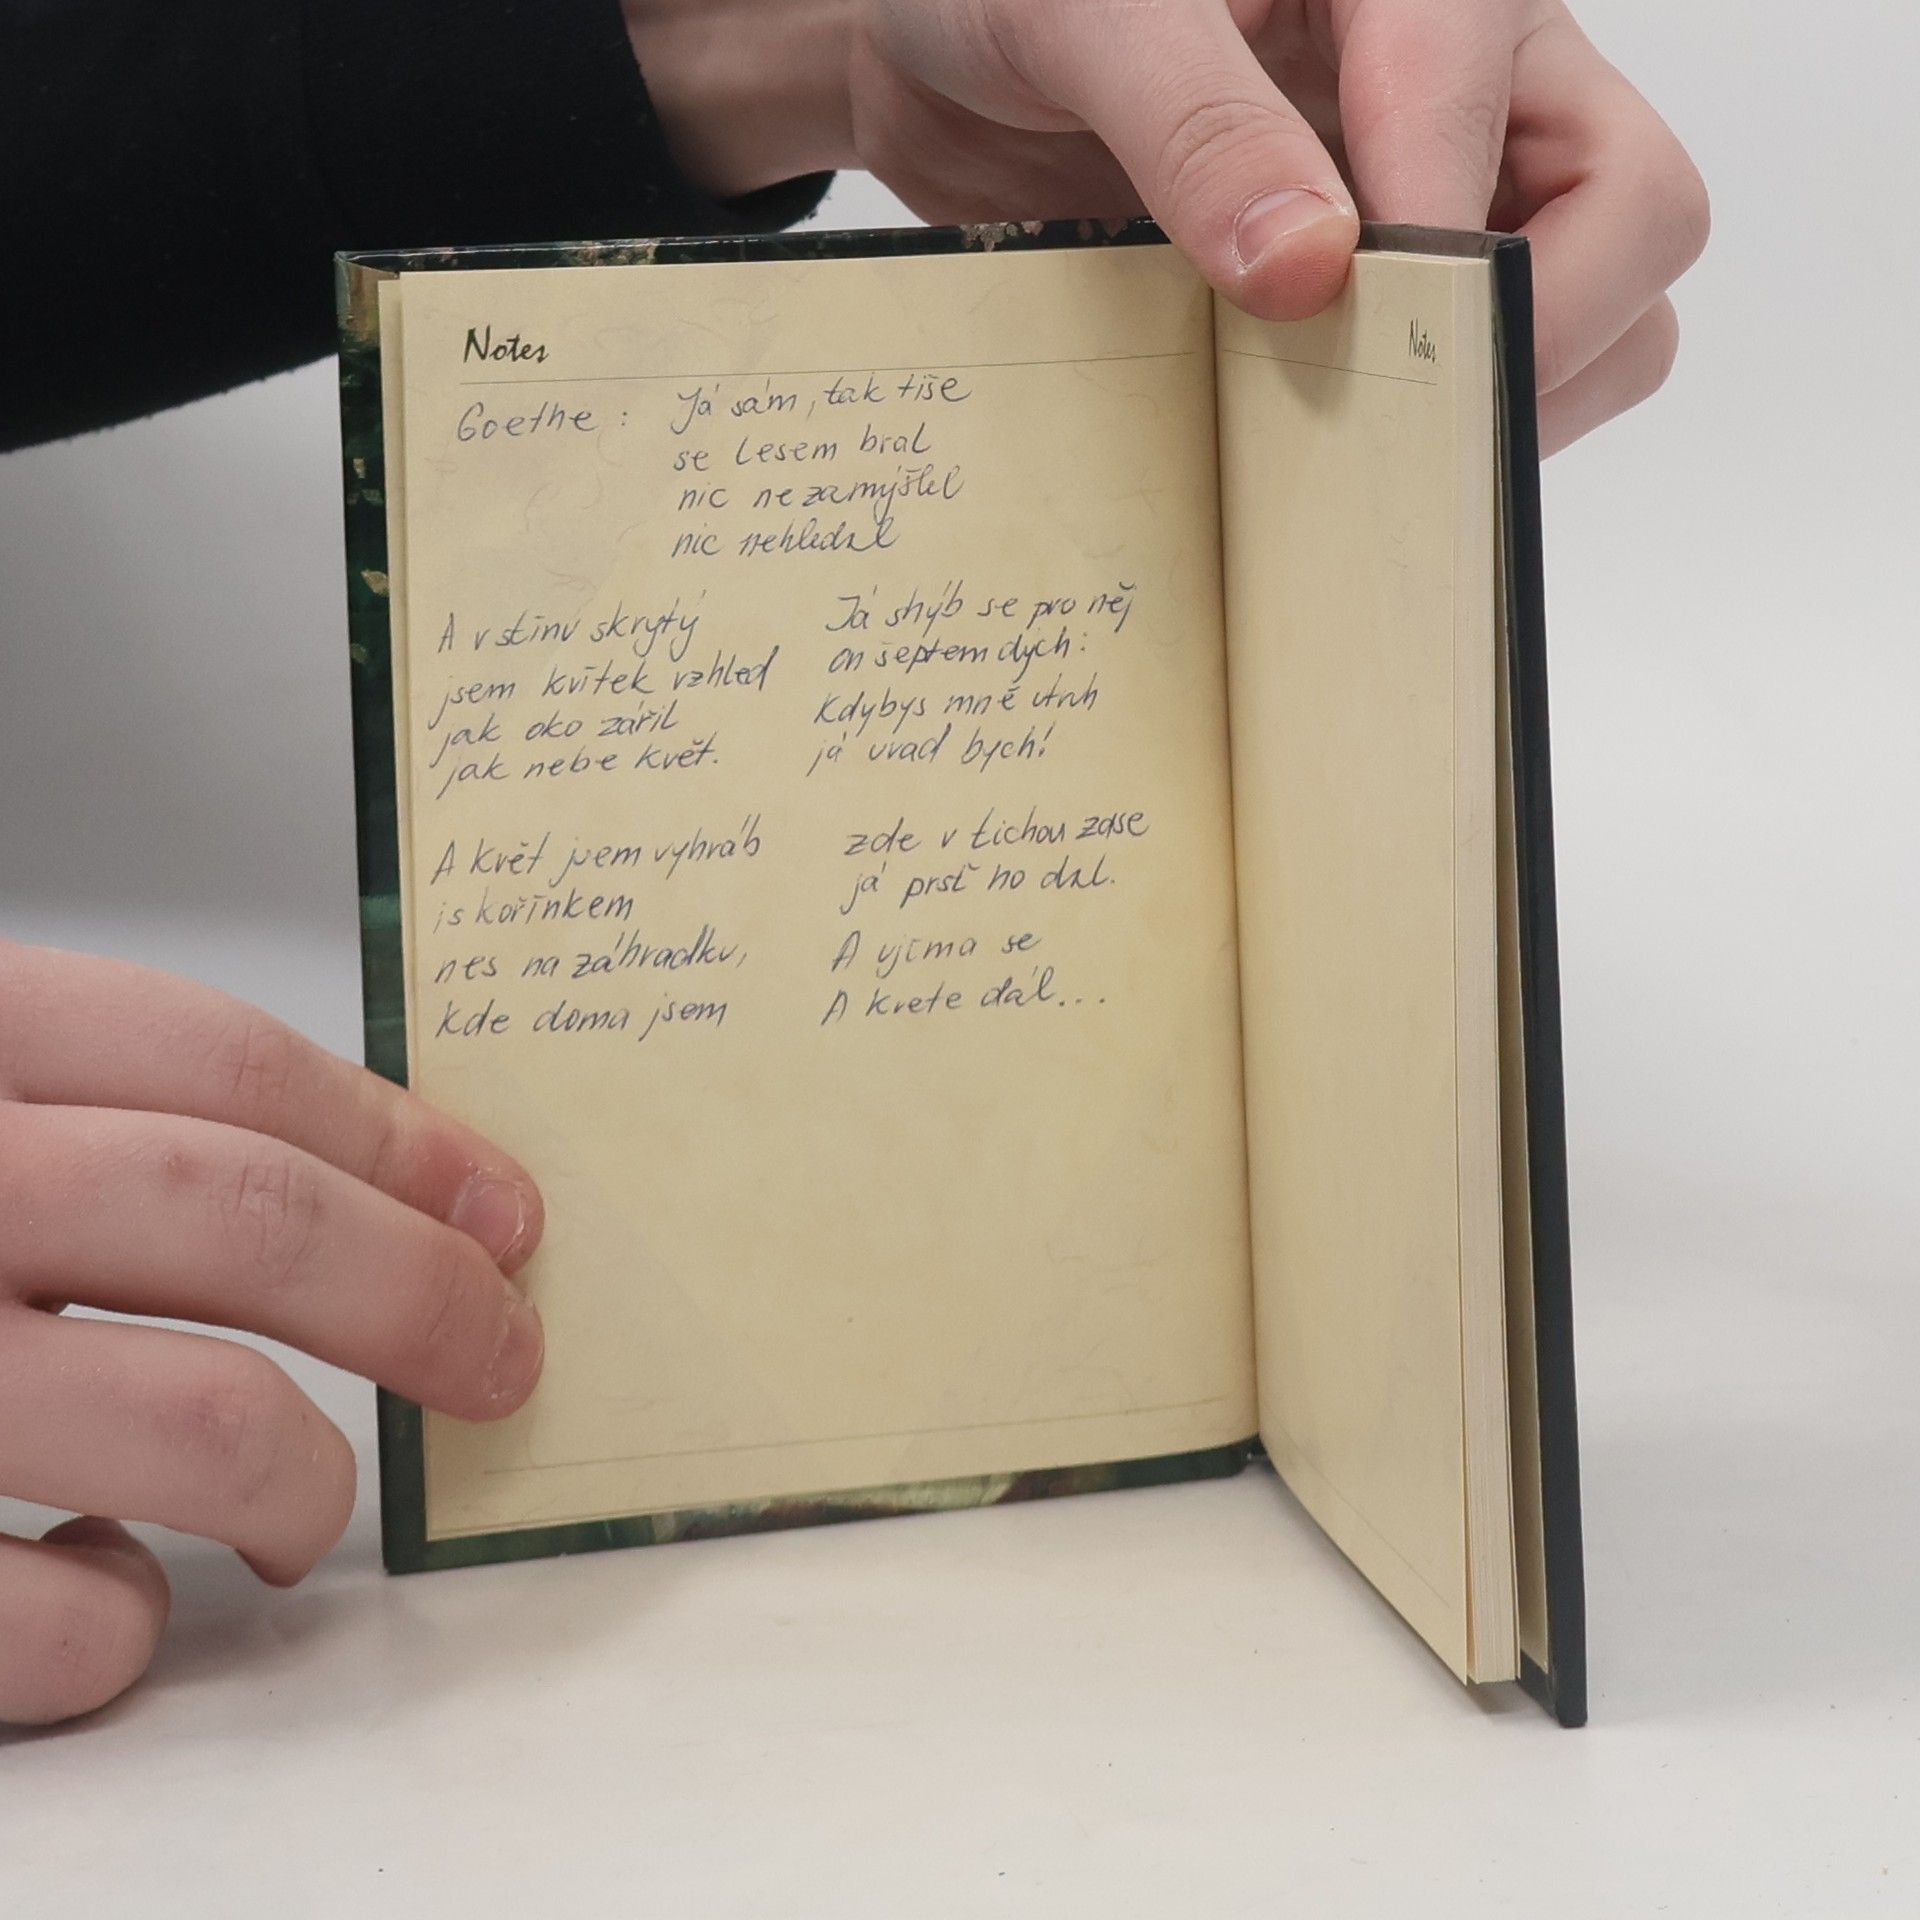 Notes
Goethe : Já sám, tak tiše
se lesem bral
nic nezamýšlel
nic nehledal
A v stínu skrytý
jsem kvítek vzhled
jak oko zářil
jak nebe květ.
Já shýb se pro něj
on šeptem dých:
Kdybys mně utrh
já uvad bych!
A květ jsem vyhráb
i s kořínkem
nes na záhradku,
kde doma jsem
zde v tichou zase
já prsť ho dal.
A ujíma se
A kvete dál...
Notes